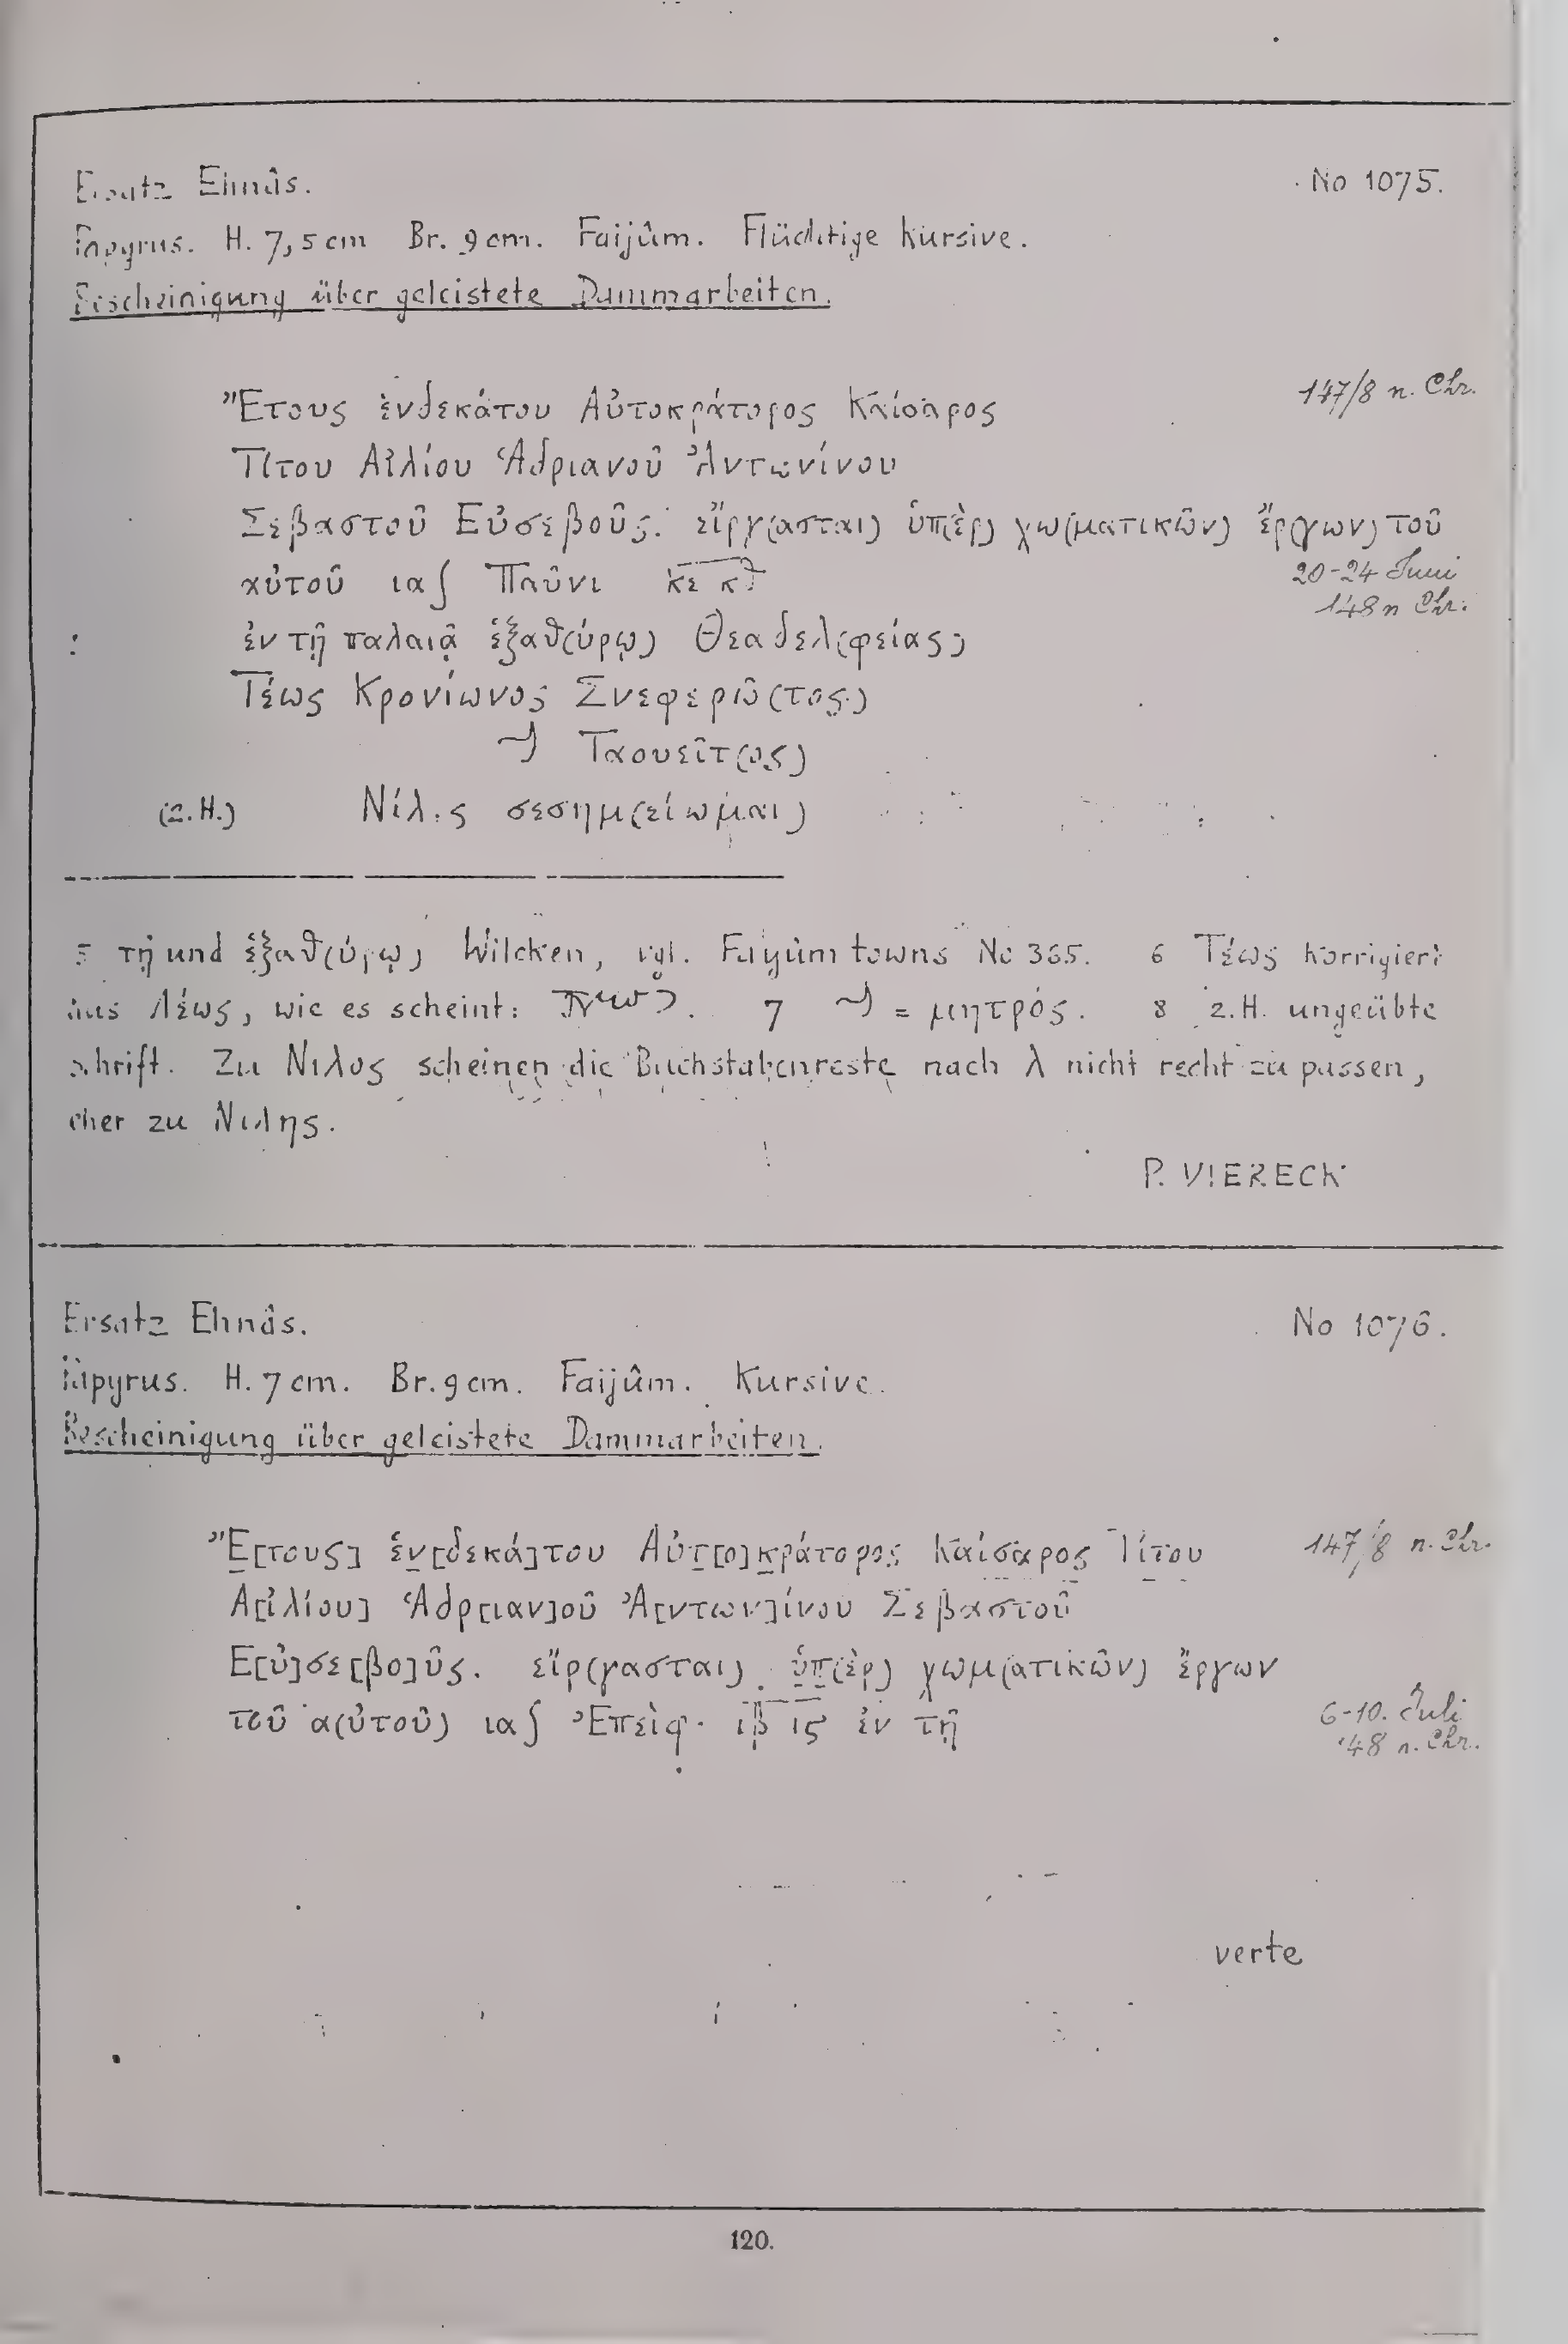 Ersatz Ehnâs. No 1075.
Papyrus. H. 7,5 cm Br. 9 cm. Faijûm. Flüchtige Kursive.
Bescheinigung über geleistete Dammarbeiten.
Ἔτους ἑνδεκάτου Αὐτοκράτορος Καίσαρος 147/8 n. Chr.
Τίτου Αἰλίου Ἁδριανοῦ Ἀντωνίνου
Σεβαστοῦ Εὐσεβοῦς. εἴργ(ασται) ὑπ(ὲρ) χω(ματικῶν) ἔρ(γων) τοῦ
αὐτοῦ ια∫ Παῦνι κε κθ 20-24 Juni
148 n Chr.
ἐν τῇ παλαιᾷ ἑξαθ(ύρῳ) Θεαδελ(φείας)
Τέως Κρονίωνος Σνεφερῶ(τος)
Ταουεῖτ(ος)
(2.H.) Νίλ.ς σεσημ(είωμαι)
5 τῇ und ἑξαθ(ύρῳ) Wilcken, vgl. Fayûm towns No 365. 6 Τέως korrigiert
aus Λέως, wie es scheint: . 7 = μητρός. 8 2.H. ungeübte
Schrift. Zu Νιλος scheinen die Buchstabenreste nach λ nicht recht zu passen,
eher zu Νιλης.
P. VIERECK
Ersatz Ehnâs. No 1076.
Papyrus. H. 7 cm. Br. 9 cm. Faijûm. Kursive.
Bescheinigung über geleistete Dammarbeiten.
Ἔ[τους] ἑν[δεκά]του Αὐτ[ο]κράτορος Καίσαρος Τίτου 147/8 n. Chr.
Α[ἰλίου] Ἁδρ[ιαν]οῦ Ἀ[ντων]ίνου Σεβαστοῦ
Ε[ὐ]σε[βο]ῦς. εἴρ(γασται) ὑπ(ὲρ) χωμ(ατικῶν) ἔργων
τοῦ α(ὐτοῦ) ια∫ Ἐπεὶφ· ιβ ις ἐν τῇ 6-10. Juli
148 n. Chr.
verte
120.